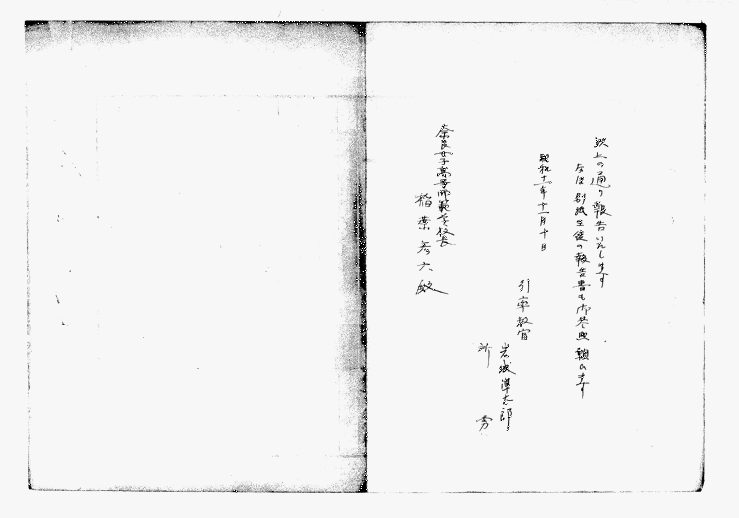 以上の通り報告いたします
なほ別紙生徒の報告書も御参照願ひます
昭和十一年十一月十日
引率教官
岩城準太郎
所 秀
奈良女子高等師範学校長
稲葉彦六殿